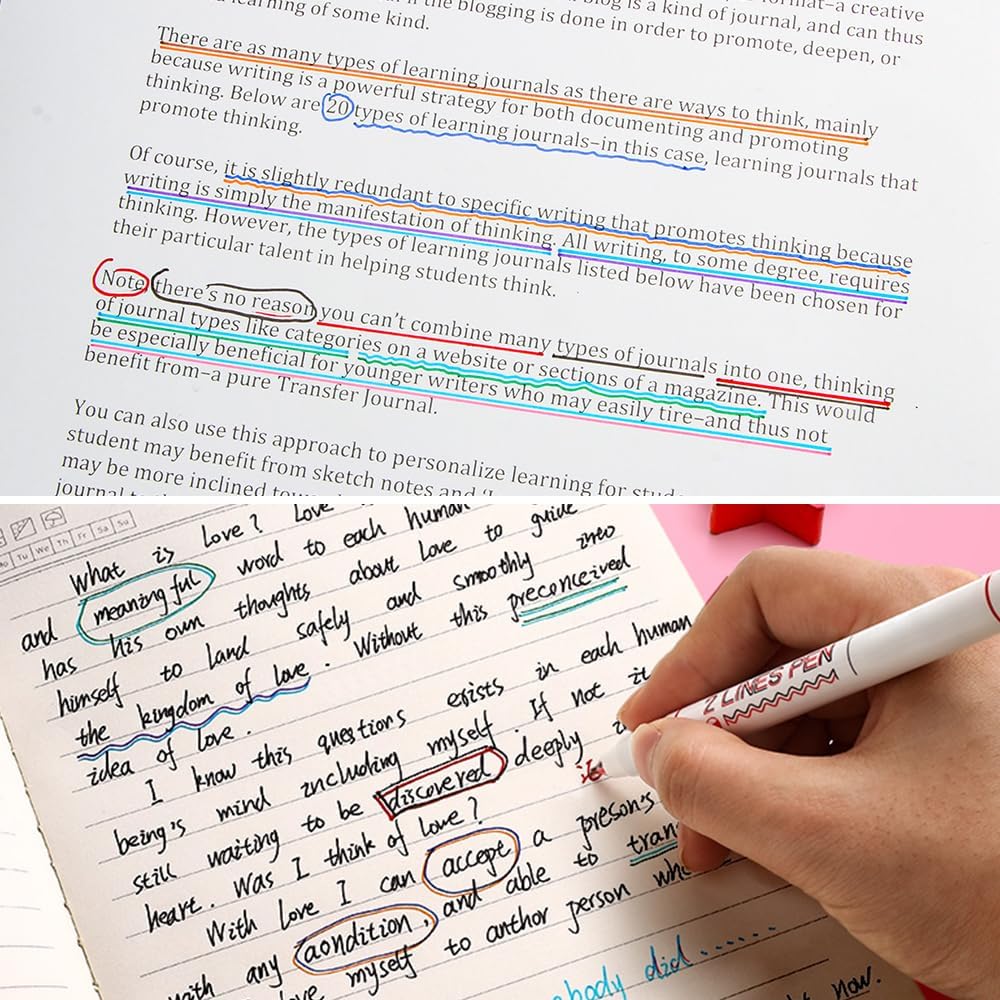 a creative
the blogging is done in order to promote, deepen, or
is a kind of journal, and can thus
learning of some kind.
There are as many types of learning journals as there are ways to think, mainly
because writing is a powerful strategy for both documenting and promoting
thinking. Below are 20 types of learning journals–in this case, learning journals that
promote thinking.
Of course, it is slightly redundant to specific writing that promotes thinking because
writing is simply the manifestation of thinking. All writing, to some degree, requires
thinking. However, the types of learning journals listed below have been chosen for
their particular talent in helping students think.
Note there's no reason you can't combine many types of journals into one, thinking
of journal types like categories on a website or sections of a magazine. This would
be especially beneficial for younger writers who may easily tire–and thus not
benefit from–a pure Transfer Journal.
You can also use this approach to personalize learning for
student may benefit from sketch notes and
may be more inclined
journal
Tu We Th Fr Sa Su
What is Love? Love
meaningful word to each human
and has his own thoughts about Love to guide
himself to land safely and smoothly into
the kingdom of love. Without this preconceived
idea of love.
I know this questions esists in each human
being's mind including myself. If not it
still waiting to be discovered deeply
heart. Was I think of love?
With Love I can accept a preson's
with any aondition, and able to tran
love myself to anthor person who
body did ......
now.
2 LINES PEN